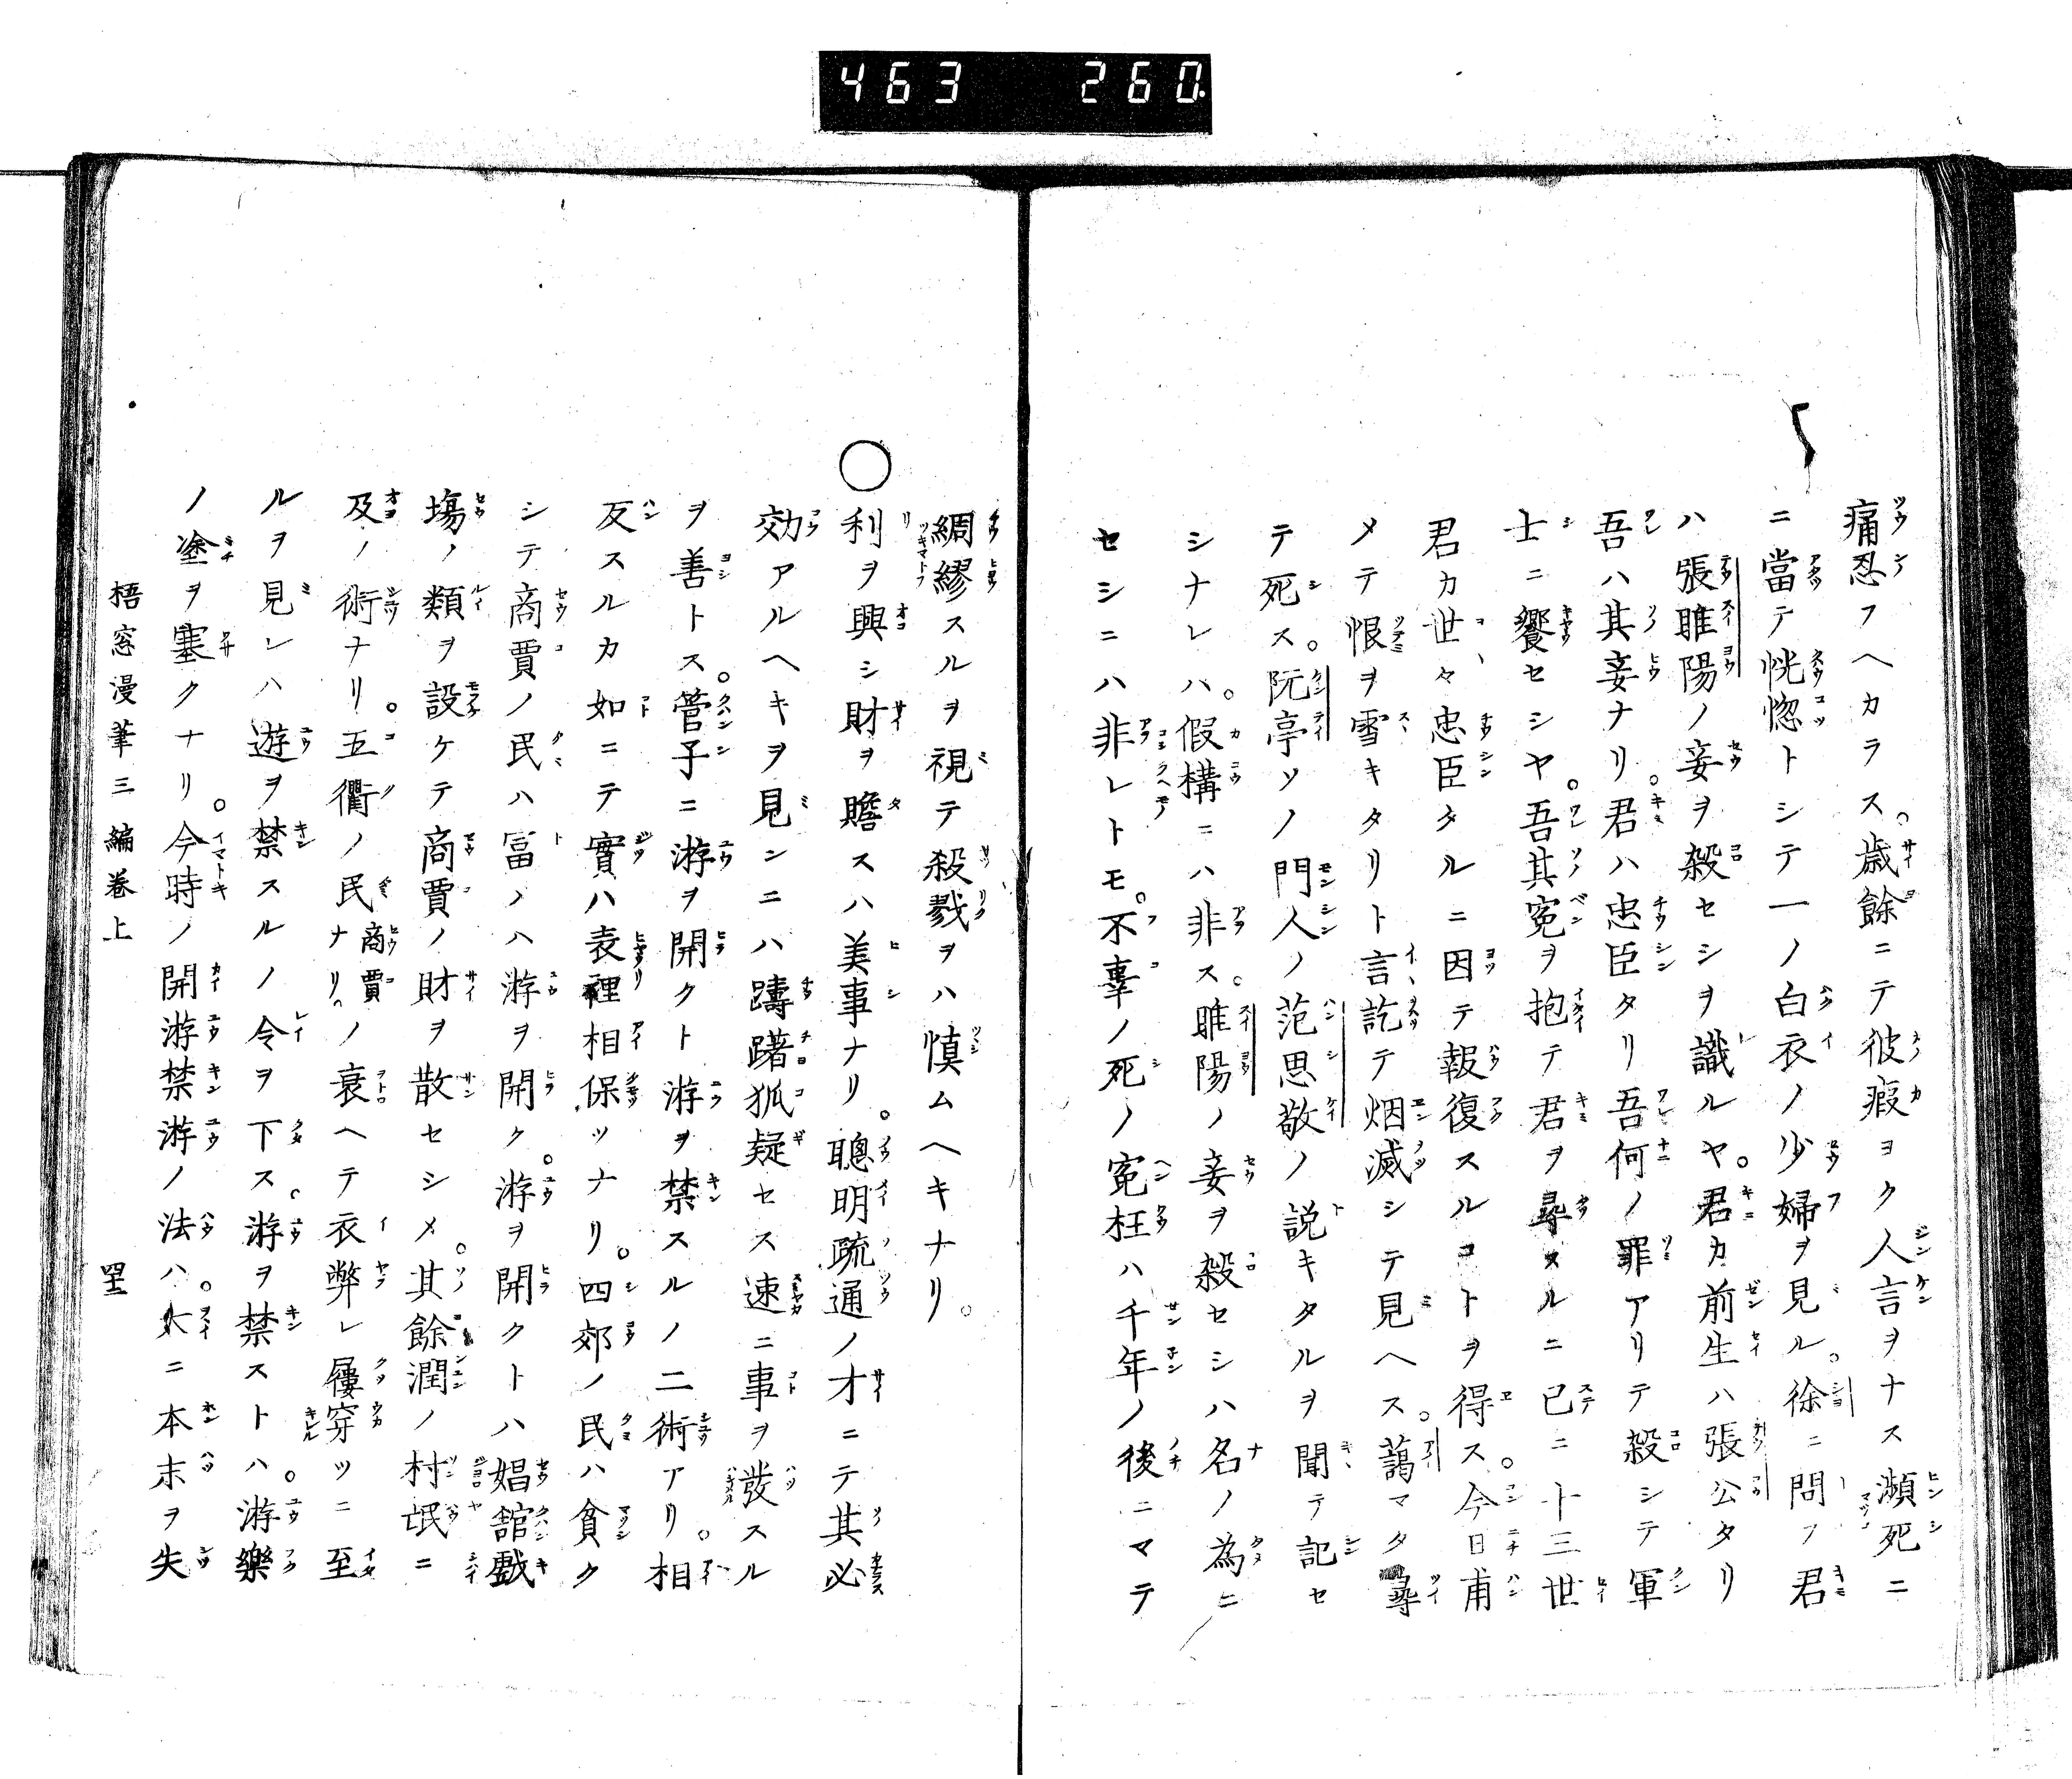 463 260
痛忍フヘカラス。歳餘ニテ彼瘕ヨク人言ヲナス瀕死ニ
ニ當テ恍惚トシテ一ノ白衣ノ少婦ヲ見ル。徐ニ問フ君
ハ張睢陽ノ妾ヲ殺セシヲ識ルヤ。君カ前生ハ張公タリ
吾ハ其妾ナリ。君ハ忠臣タリ吾何ノ罪アリテ殺シテ軍
士ニ饗セシヤ。吾其寃ヲ抱テ君ヲ尋ヌルニ已ニ十三世
君カ世々忠臣タルニ因テ報復スルコトヲ得ス。今日甫
メテ恨ヲ雪キタリト言訖テ烟滅シテ見ヘス。藹マタ尋
テ死ス。阮亭ソノ門人ノ范思敬ノ説キタルヲ聞テ記セ
シナレハ。假構ニハ非ス。睢陽ノ妾ヲ殺セシハ名ノ為ニ
セシニハ非レトモ。不辜ノ死ノ寃枉ハ千年ノ後ニマテ
綢繆スルヲ視テ殺戮ヲハ慎ムヘキナリ。
○利ヲ興シ財ヲ贍スハ美事ナリ。聰明疏通ノ才ニテ其必
効アルヘキヲ見ンニハ躊躇狐疑セス速ニ事ヲ發スル
ヲ善トス。管子ニ游ヲ開クト游ヲ禁スルノ二術アリ。相
反スルカ如ニテ實ハ表裡相保ツナリ。四郊ノ民ハ貧ク
シテ商賈ノ民ハ冨ノハ游ヲ開ク。游ヲ開クトハ娼舘戯
塲ノ類ヲ設ケテ商賈ノ財ヲ散セシメ。其餘潤ノ村氓ニ
及ノ術ナリ。五衢ノ民商賈ナリノ衰ヘテ衣弊レ屨穿ツニ至
ルヲ見レハ遊ヲ禁スルノ令ヲ下ス。游ヲ禁ストハ。游樂
ノ塗ヲ塞クナリ。今時ノ開游禁游ノ法ハ。大ニ本末ヲ失
梧窓漫筆三編巻上